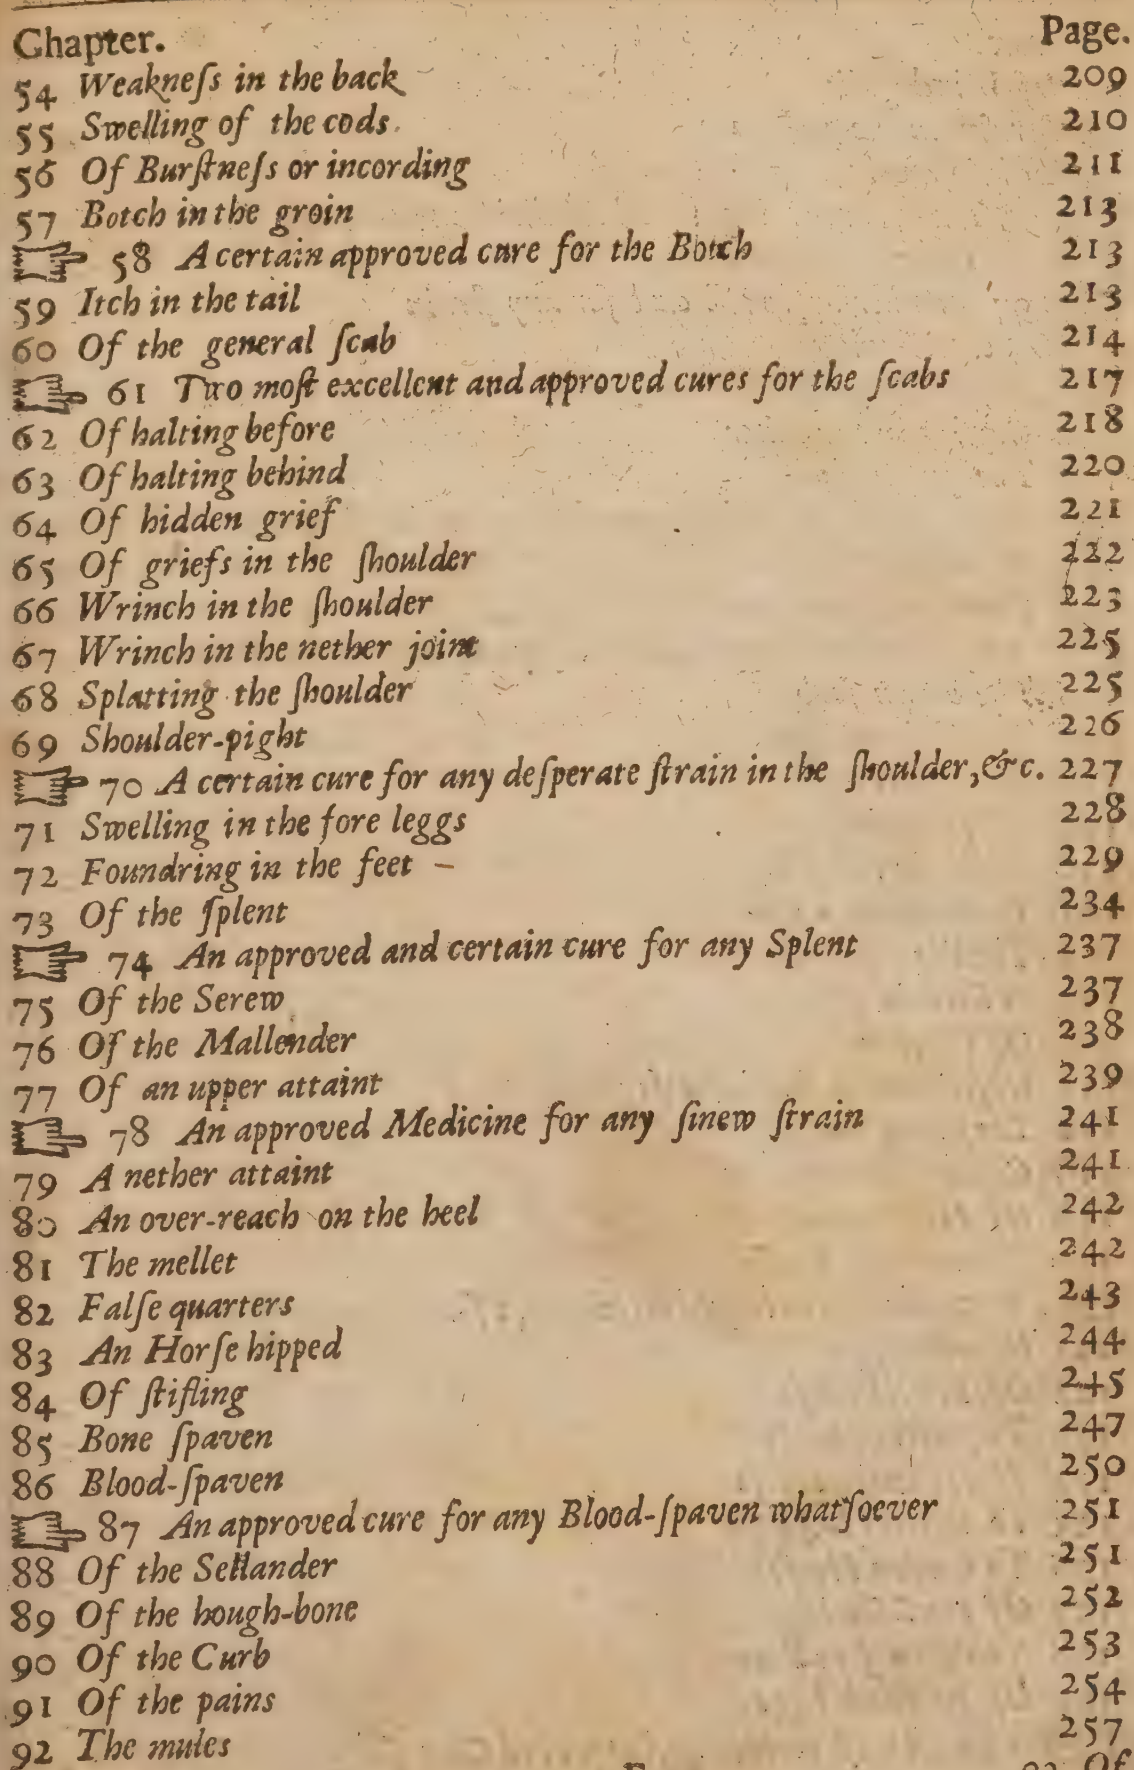 Chapter. Page.
54 Weakneſs in the back 209
55 Swelling of the cods. 210
56 Of Burſtneſs or incording 211
57 Botch in the groin 213
☞ 58 A certain approved cure for the Botch 213
59 Itch in the tail 213
60 Of the general ſcab 214
☞ 61 Two moſt excellent and approved cures for the ſcabs 217
62 Of halting before 218
63 Of halting behind 220
64 Of hidden grief 221
65 Of griefs in the ſhoulder 222
66 Wrinch in the ſhoulder 223
67 Wrinch in the nether joint 225
68 Splatting the ſhoulder 225
69 Shoulder-pight 226
☞ 70 A certain cure for any deſperate ſtrain in the ſhoulder, &c. 227
71 Swelling in the fore leggs 228
72 Foundring in the feet 229
73 Of the ſplent 234
☞ 74 An approved and certain cure for any Splent 237
75 Of the Serew 237
76 Of the Mallender 238
77 Of an upper attaint 239
☞ 78 An approved Medicine for any ſinew ſtrain 241
79 A nether attaint 241
80 An over-reach on the heel 242
81 The mellet 242
82 Falſe quarters 243
83 An Horſe hipped 244
84 Of ſtifling 245
85 Bone ſpaven 247
86 Blood-ſpaven 250
☞ 87 An approved cure for any Blood-ſpaven whatſoever 251
88 Of the Sellander 251
89 Of the hough-bone 252
90 Of the Curb 253
91 Of the pains 254
92 The mules 257
Of